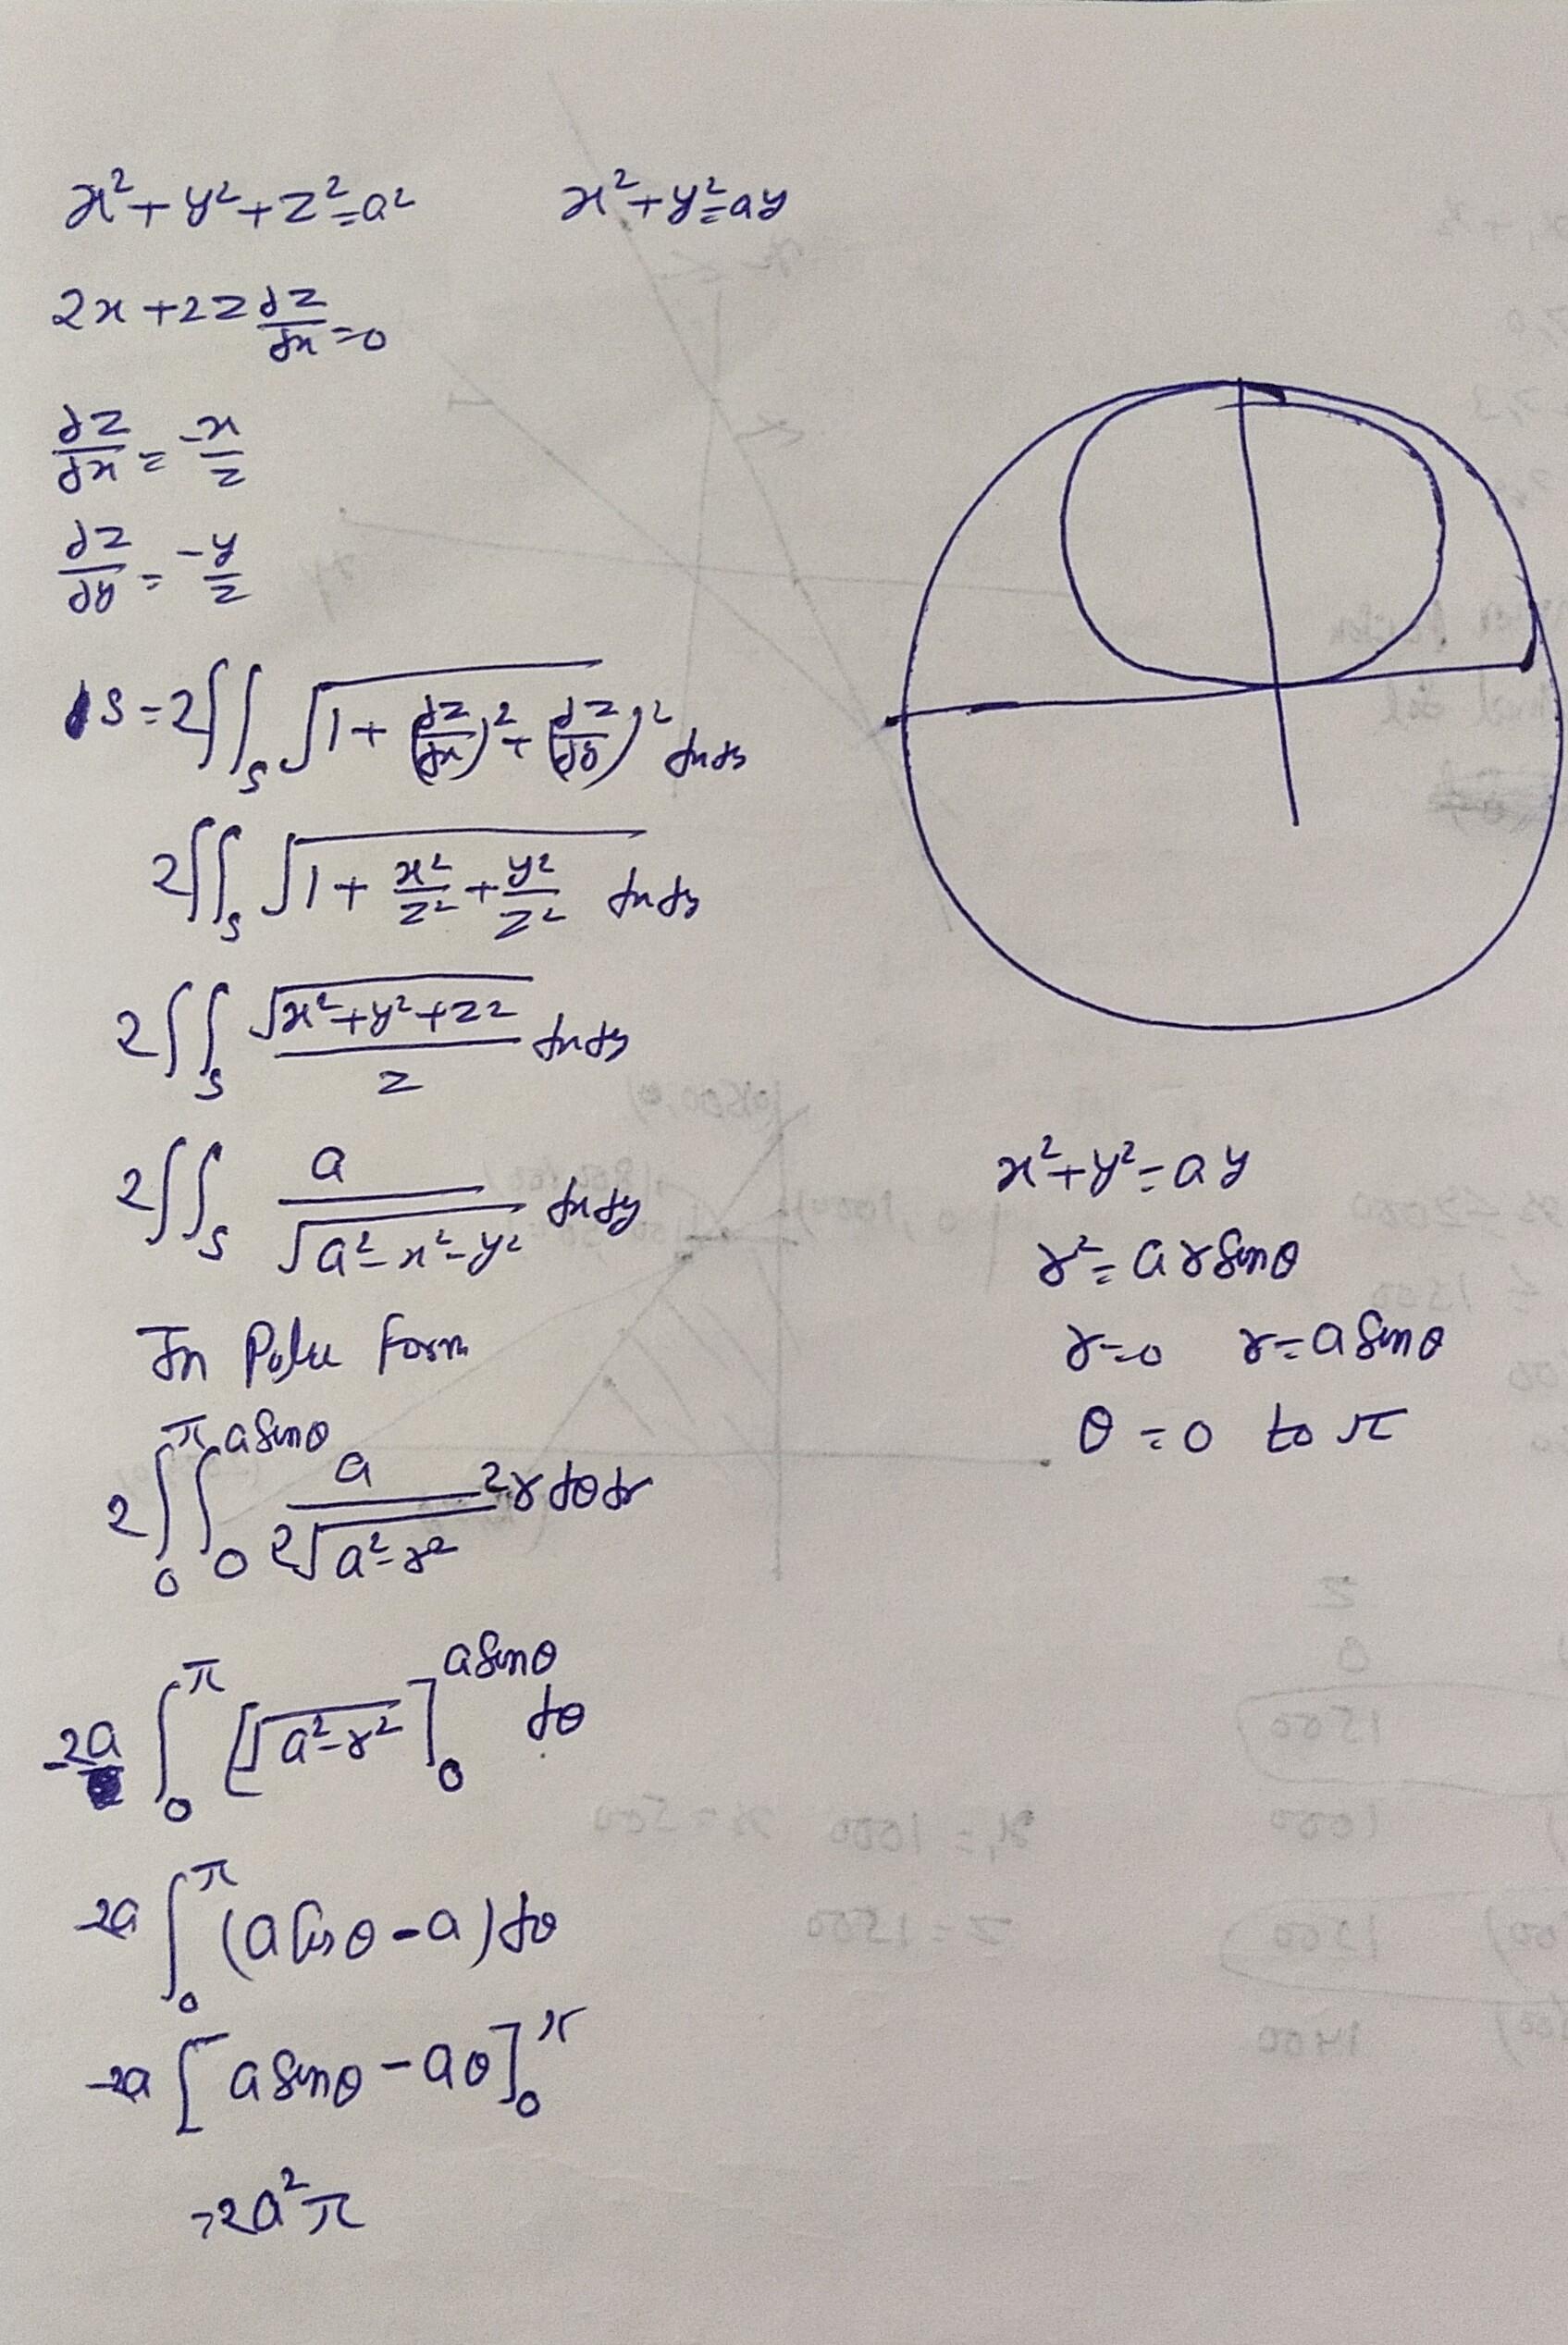 x²+y²+z²=a²    x²+y²=ay
2x+2z ∂z/∂x=0
∂z/∂x = -x/z
∂z/∂y = -y/z
S=2∬_S √(1+(∂z/∂x)²+(∂z/∂y)²) dxdy
2∬_S √(1+x²/z²+y²/z²) dxdy
2∬_S √(x²+y²+z²)/z dxdy
2∬_S a/√(a²-x²-y²) dxdy
In Polar form
2∫_0^π ∫_0^{a sinθ} a/(2√(a²-r²)) 2r dθdr
-2a ∫_0^π [√(a²-r²)]_0^{a sinθ} dθ
-2a ∫_0^π (a cosθ-a)dθ
-2a [a sinθ-aθ]_0^π
=2a²π
x²+y²=ay
r²=ar sinθ
r=0    r=a sinθ
θ=0 to π